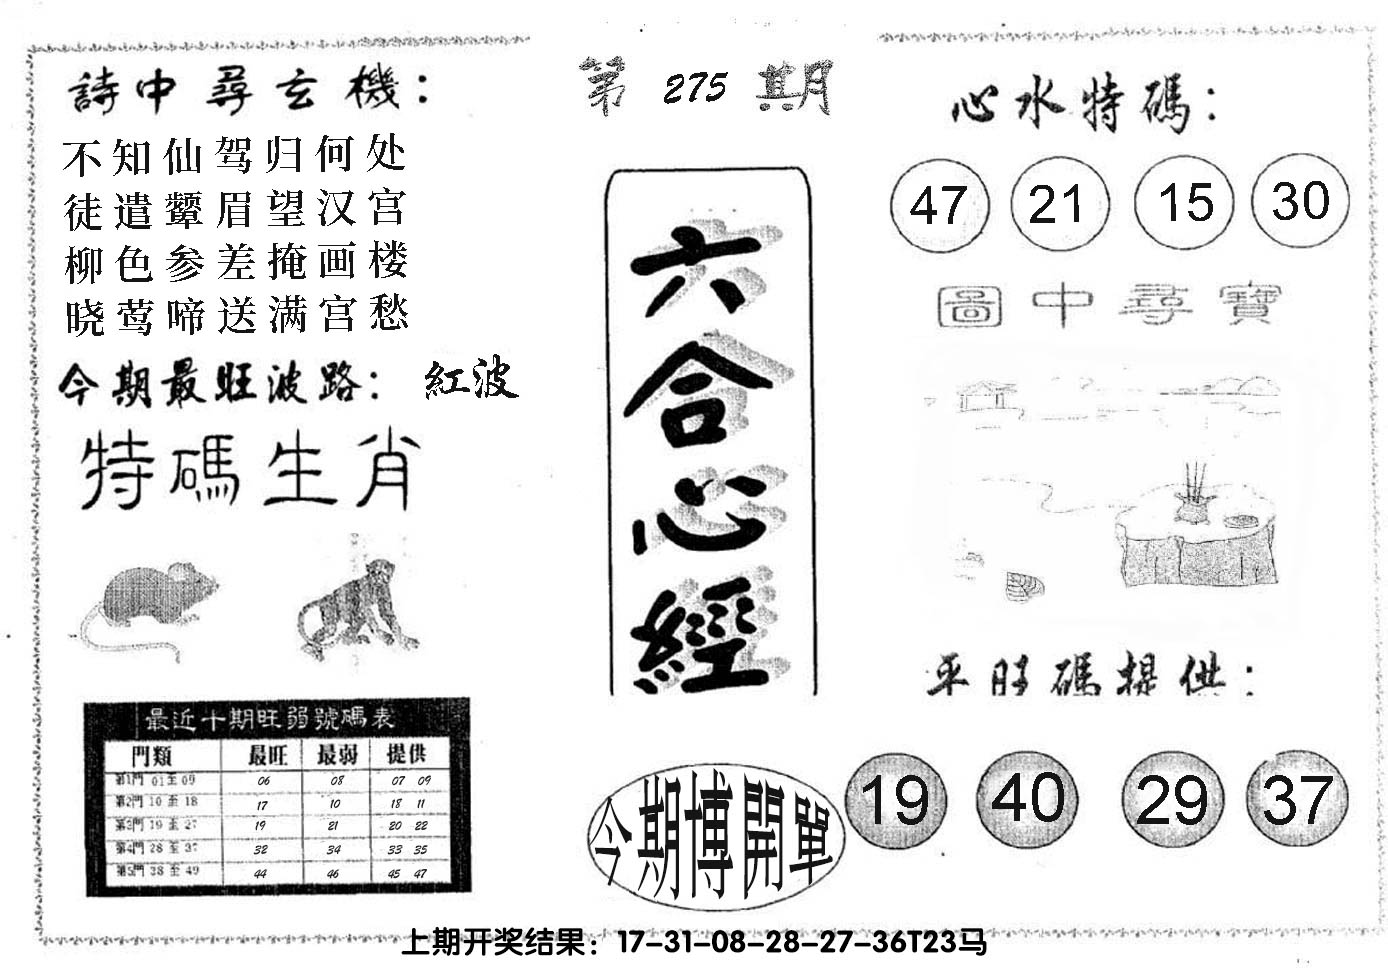 詩中尋玄機：
不知仙驾归何处
徒遣颦眉望汉宫
柳色参差掩画楼
晓莺啼送满宫愁
今期最旺波路： 紅波
特碼生肖
最近十期旺弱號碼表
門類 最旺 最弱 提供
第1門 01至09 06 08 07 09
第2門 10至18 17 10 18 11
第3門 19至27 19 21 20 22
第4門 28至37 32 34 33 35
第5門 38至49 44 46 45 47
第275期
六合心經
今期博開單
心水特碼：
47 21 15 30
圖中尋寶
平旺碼提供：
19 40 29 37
上期开奖结果：17-31-08-28-27-36T23马